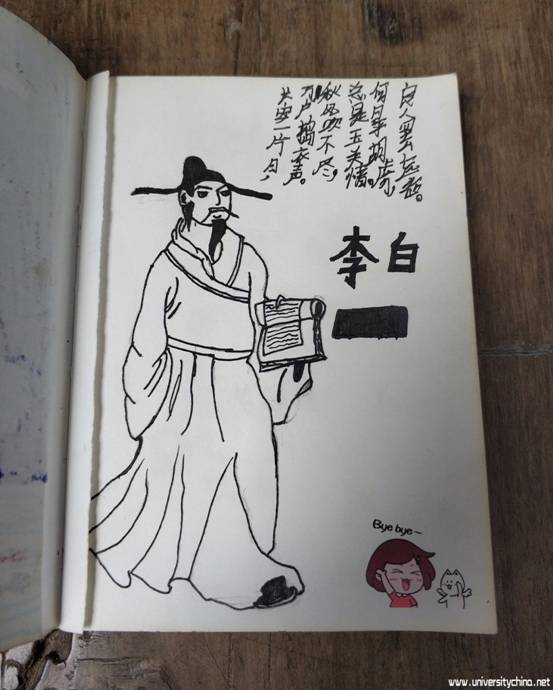 长安一片月，
万户捣衣声。
秋风吹不尽，
总是玉关情。
何日平胡虏，
良人罢远征。
李白
Bye bye~
www.universitychina.net